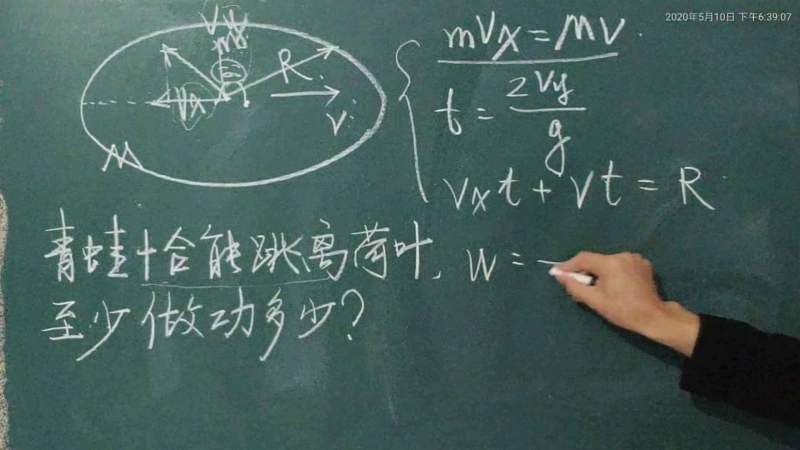 2020年5月10日 下午6:39:07
Vy
m
R
Vx
V
M
mVx=MV
t=2Vy/g
Vxt+Vt=R
青蛙恰能跳离荷叶,
至少做功多少?
W=